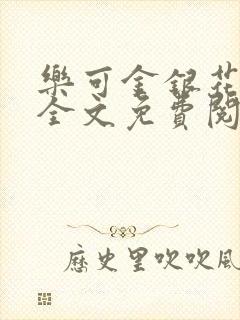 樂可金銀花
全文免費閱
歷史里吹吹風